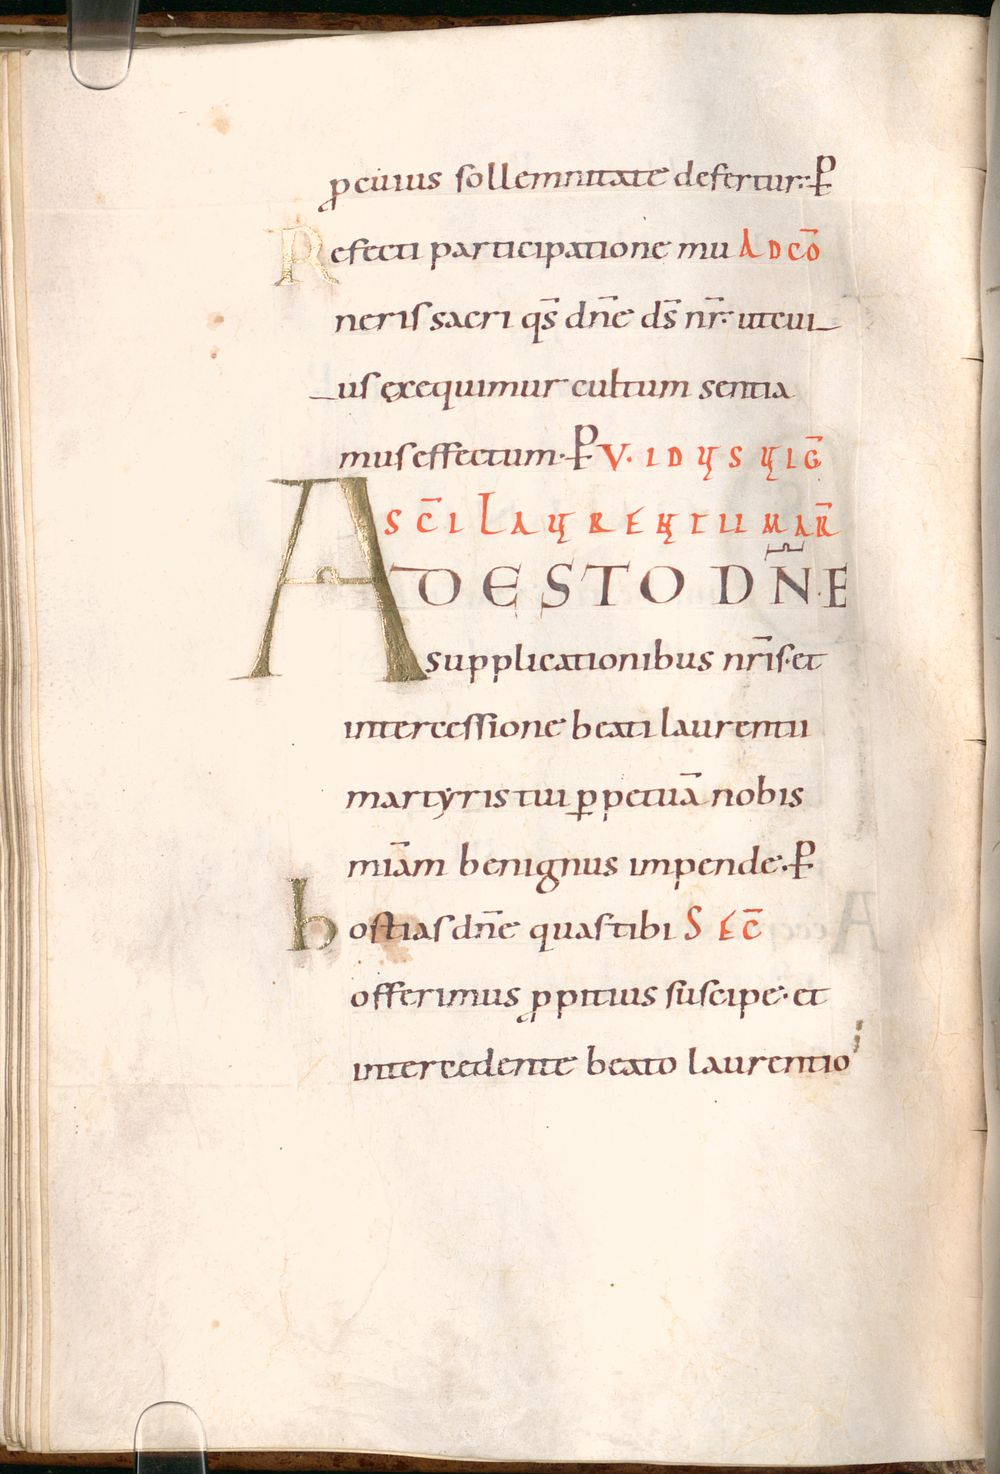 ꝓ cuius sollemnitate defertur. ꝑ
Refecti participatione mu AD CŌ
neris sacri qs̄ dn̄e ds̄ nr̄. ut cui
us exequimur cultum sentia
mus effectum. ꝑ V. IDUS UIG̅
SC̄I LAURENTII MAR̄
ADESTO DN̄E
supplicationibus nr̄is. et
intercessione beati laurentii
martyris tui ꝑpetuā nobis
miā̄m benignus impende. ꝑ
hostias dn̄e quas tibi SEC̄
offerimus ꝓpitius suscipe. et
intercedente beato laurentio